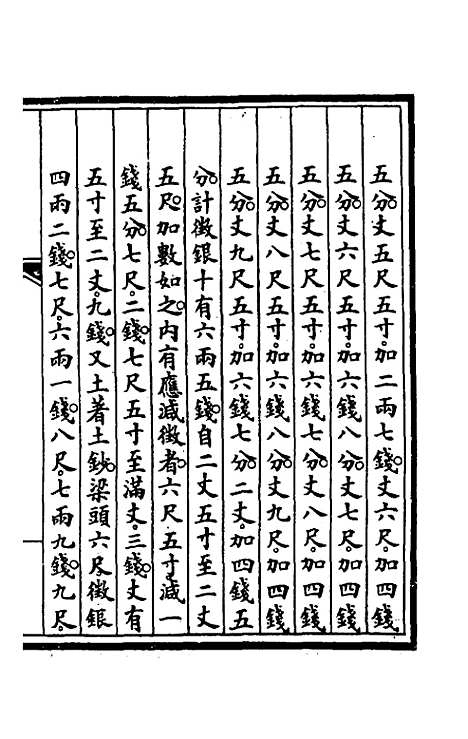 五分丈五尺五寸加二兩七錢丈六尺加四錢
五分丈六尺五寸加六錢八分丈七尺加四錢
五分丈七尺五寸加六錢七分丈八尺加四錢
五分丈八尺五寸加六錢八分丈九尺加四錢
五分丈九尺五寸加六錢七分二丈加四錢五
分計徵銀十有六兩五錢自二丈五寸至二丈
五尺加數如之內有應減徵者六尺五寸減一
錢五分七尺二錢七尺五寸至滿丈三錢丈有
五寸至二丈九錢又土著土鈔梁頭六尺徵銀
四兩二錢七尺六兩一錢八尺七兩九錢九尺